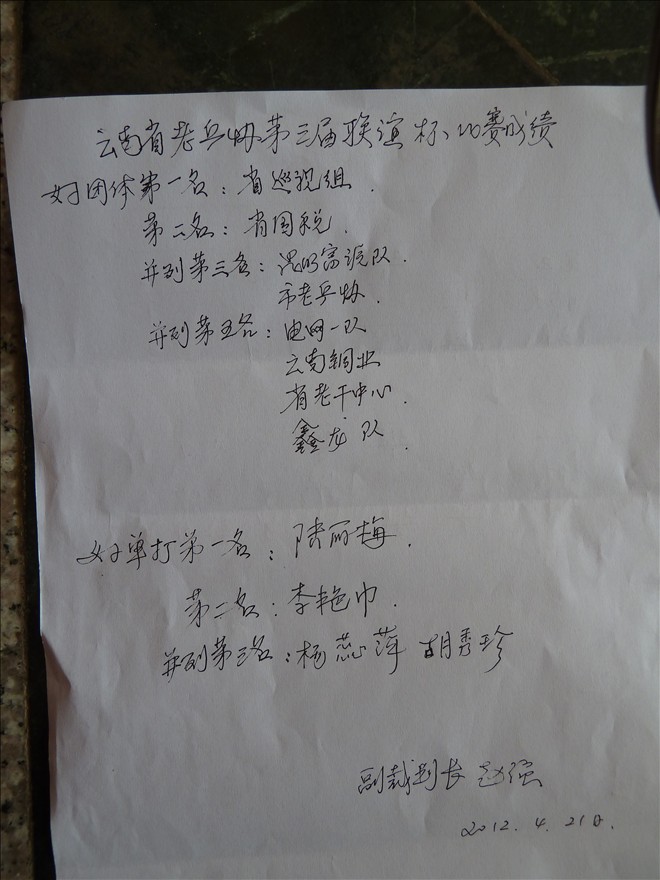 云南省老乒协第三届联谊杯比赛成绩
女子团体第一名：省巡视组.
第二名：省国税.
并列第三名：昆明富源队.
市老乒协.
并列第五名：电网一队
云南铜业
省老干中心.
鑫龙队.
女子单打第一名：陆丽梅.
第二名：李艳巾.
并列第三名：杨蕊萍 胡秀珍
副裁判长 赵强
2012.4.21日.